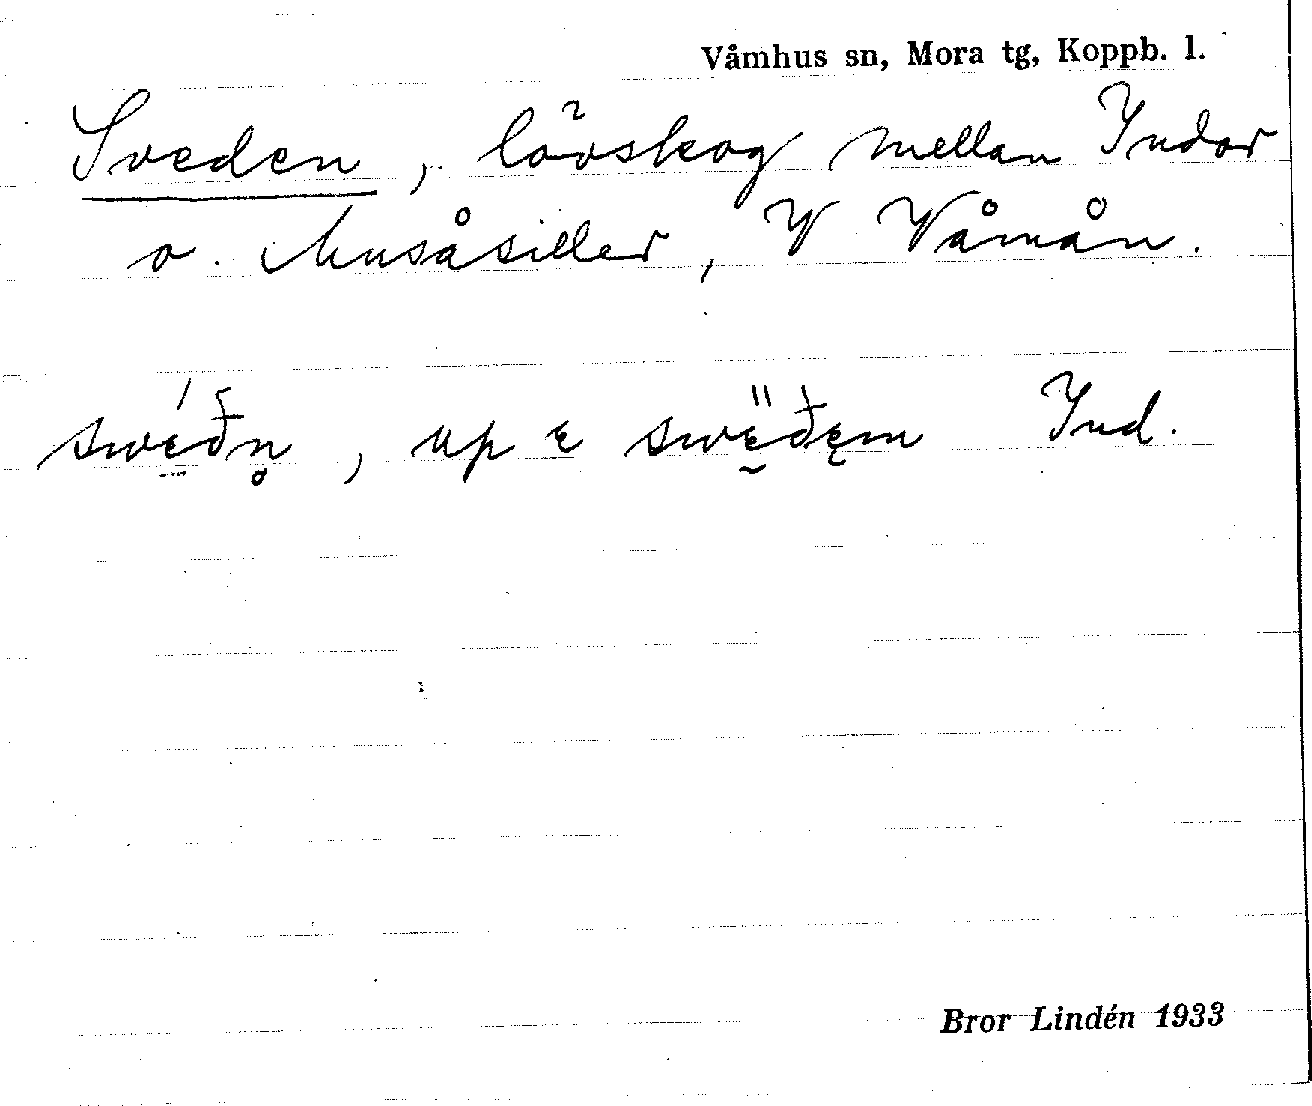 Våmhus sn, Mora tg, Koppb. l.
Sveden, lövskog mellan Indor
o. Musåsiller, V Våmån.
swé̲ðn̥, up ε swë̮ðę̀m Ind.
Bror Lindén 1933